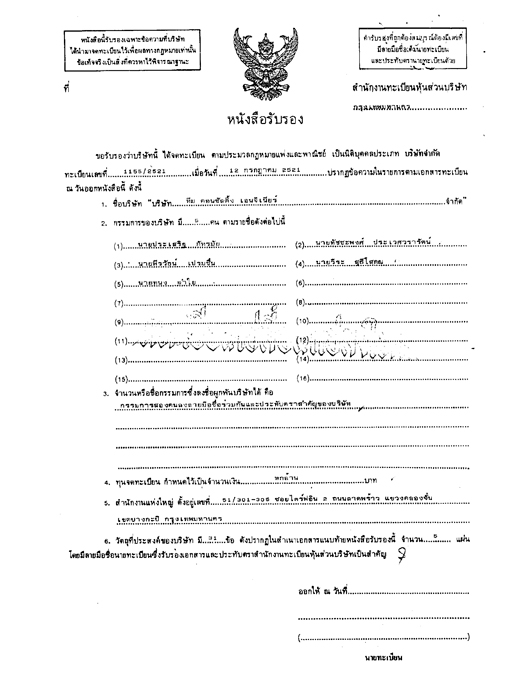 หนังสือนี้รับรองเฉพาะข้อความที่บริษัท
ได้นำมาจดทะเบียนไว้เพื่อผลทางกฎหมายเท่านั้น
ข้อเท็จจริงเป็นสิ่งที่ควรหาไว้พิจารณาฐานะ
คำรับรองที่ถูกต้องสมบูรณ์ต้องมีเลขที่
มีลายมือชื่อเต็มนายทะเบียน
และประทับตรานายทะเบียนด้วย
ที่
สำนักงานทะเบียนหุ้นส่วนบริษัท
กรุงเทพมหานคร
หนังสือรับรอง
ขอรับรองว่าบริษัทนี้ ได้จดทะเบียน ตามประมวลกฎหมายแพ่งและพาณิชย์ เป็นนิติบุคคลประเภท บริษัทจำกัด
ทะเบียนเลขที่ 1155/2521 เมื่อวันที่ 12 กรกฎาคม 2521 ปรากฏข้อความในรายการตามเอกสารทะเบียน
ณ วันออกหนังสือนี้ ดังนี้
1. ชื่อบริษัท "บริษัท ทีม คอนซัลติ้ง เอนจิเนียร์ จำกัด"
2. กรรมการของบริษัท มี 5 คน ตามรายชื่อดังต่อไปนี้
(1) นายประเสริฐ ภัทรมัย (2) ประเวศวรารัตน์
(3) นายธีรวัฒน์ เปรมชื่น (4) นายวีระ
(5) (6)
(7) (8)
(9) (10)
(11) (12)
(13) (14)
(15) (16)
3. จำนวนหรือชื่อกรรมการซึ่งลงชื่อผูกพันบริษัทได้ คือ
กรรมการสองคนลงลายมือชื่อร่วมกันและประทับตราสำคัญของบริษัท
4. ทุนจดทะเบียน กำหนดไว้เป็นจำนวนเงิน หกล้าน บาท
5. สำนักงานแห่งใหญ่ ตั้งอยู่เลขที่ 51/301-305 ซอยไดร์ฟอิน 2 ถนนลาดพร้าว แขวงคลองจั่น
เขตบางกะปิ กรุงเทพมหานคร
6. วัตถุที่ประสงค์ของบริษัท มี ข้อ ดังปรากฏในสำเนาเอกสารแนบท้ายหนังสือรับรองนี้ จำนวน แผ่น
โดยมีลายมือชื่อนายทะเบียนซึ่งรับรองเอกสารและประทับตราสำนักงานทะเบียนหุ้นส่วนบริษัทเป็นสำคัญ
ออกให้ ณ วันที่
นายทะเบียน